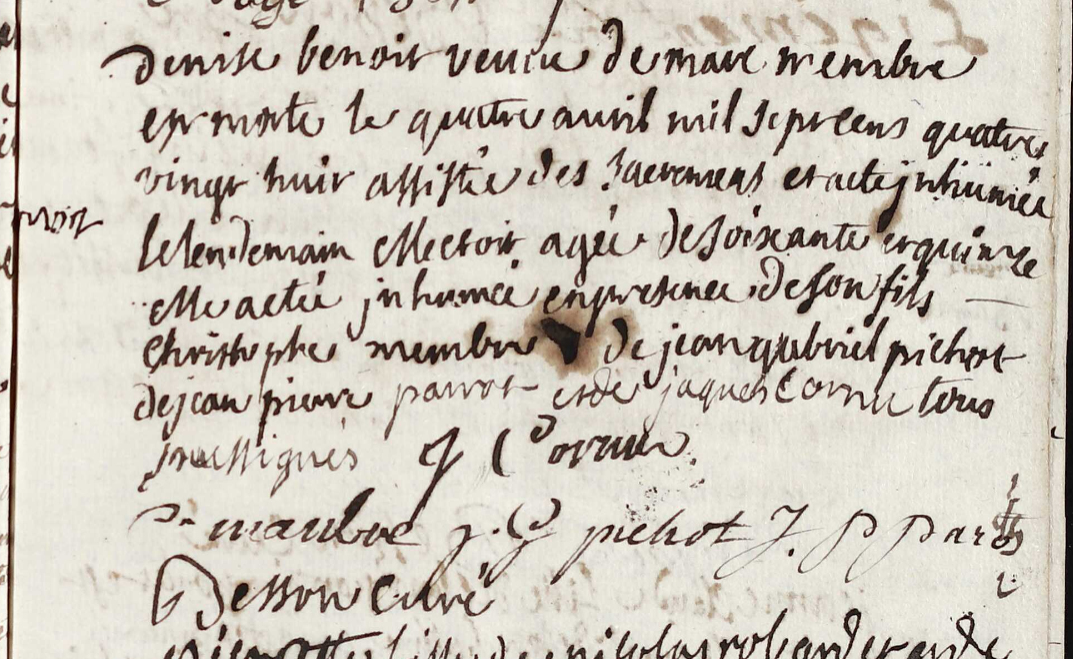 denise benoit veuve de marc membre
est morte le quatre avril mil sept cens quatre
vingt huit assistée des sacremens et a eté inhumée
le lendemain elle etoit agée de soixante et quinze
elle a eté inhumée en presence de son fils
christophe membre de jean gabriel pichot
de jean pierre parrot et de jaques Cornu tous
soussignés J Cornu
C manbre j. G pichot J. P Parot
Besson Curé
fille de nicolas robardet et de